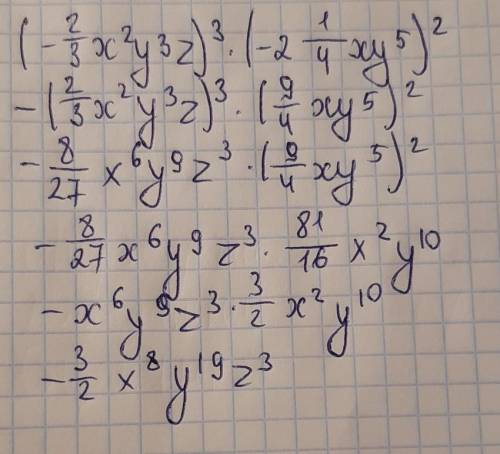 (-2/3 x²y³z)³ · (-2 1/4 xy⁵)²
-(2/3 x²y³z)³ · (9/4 xy⁵)²
-8/27 x⁶y⁹z³ · (9/4 xy⁵)²
-8/27 x⁶y⁹z³ · 81/16 x²y¹⁰
-x⁶y⁹z³ · 3/2 x²y¹⁰
-3/2 x⁸y¹⁹z³